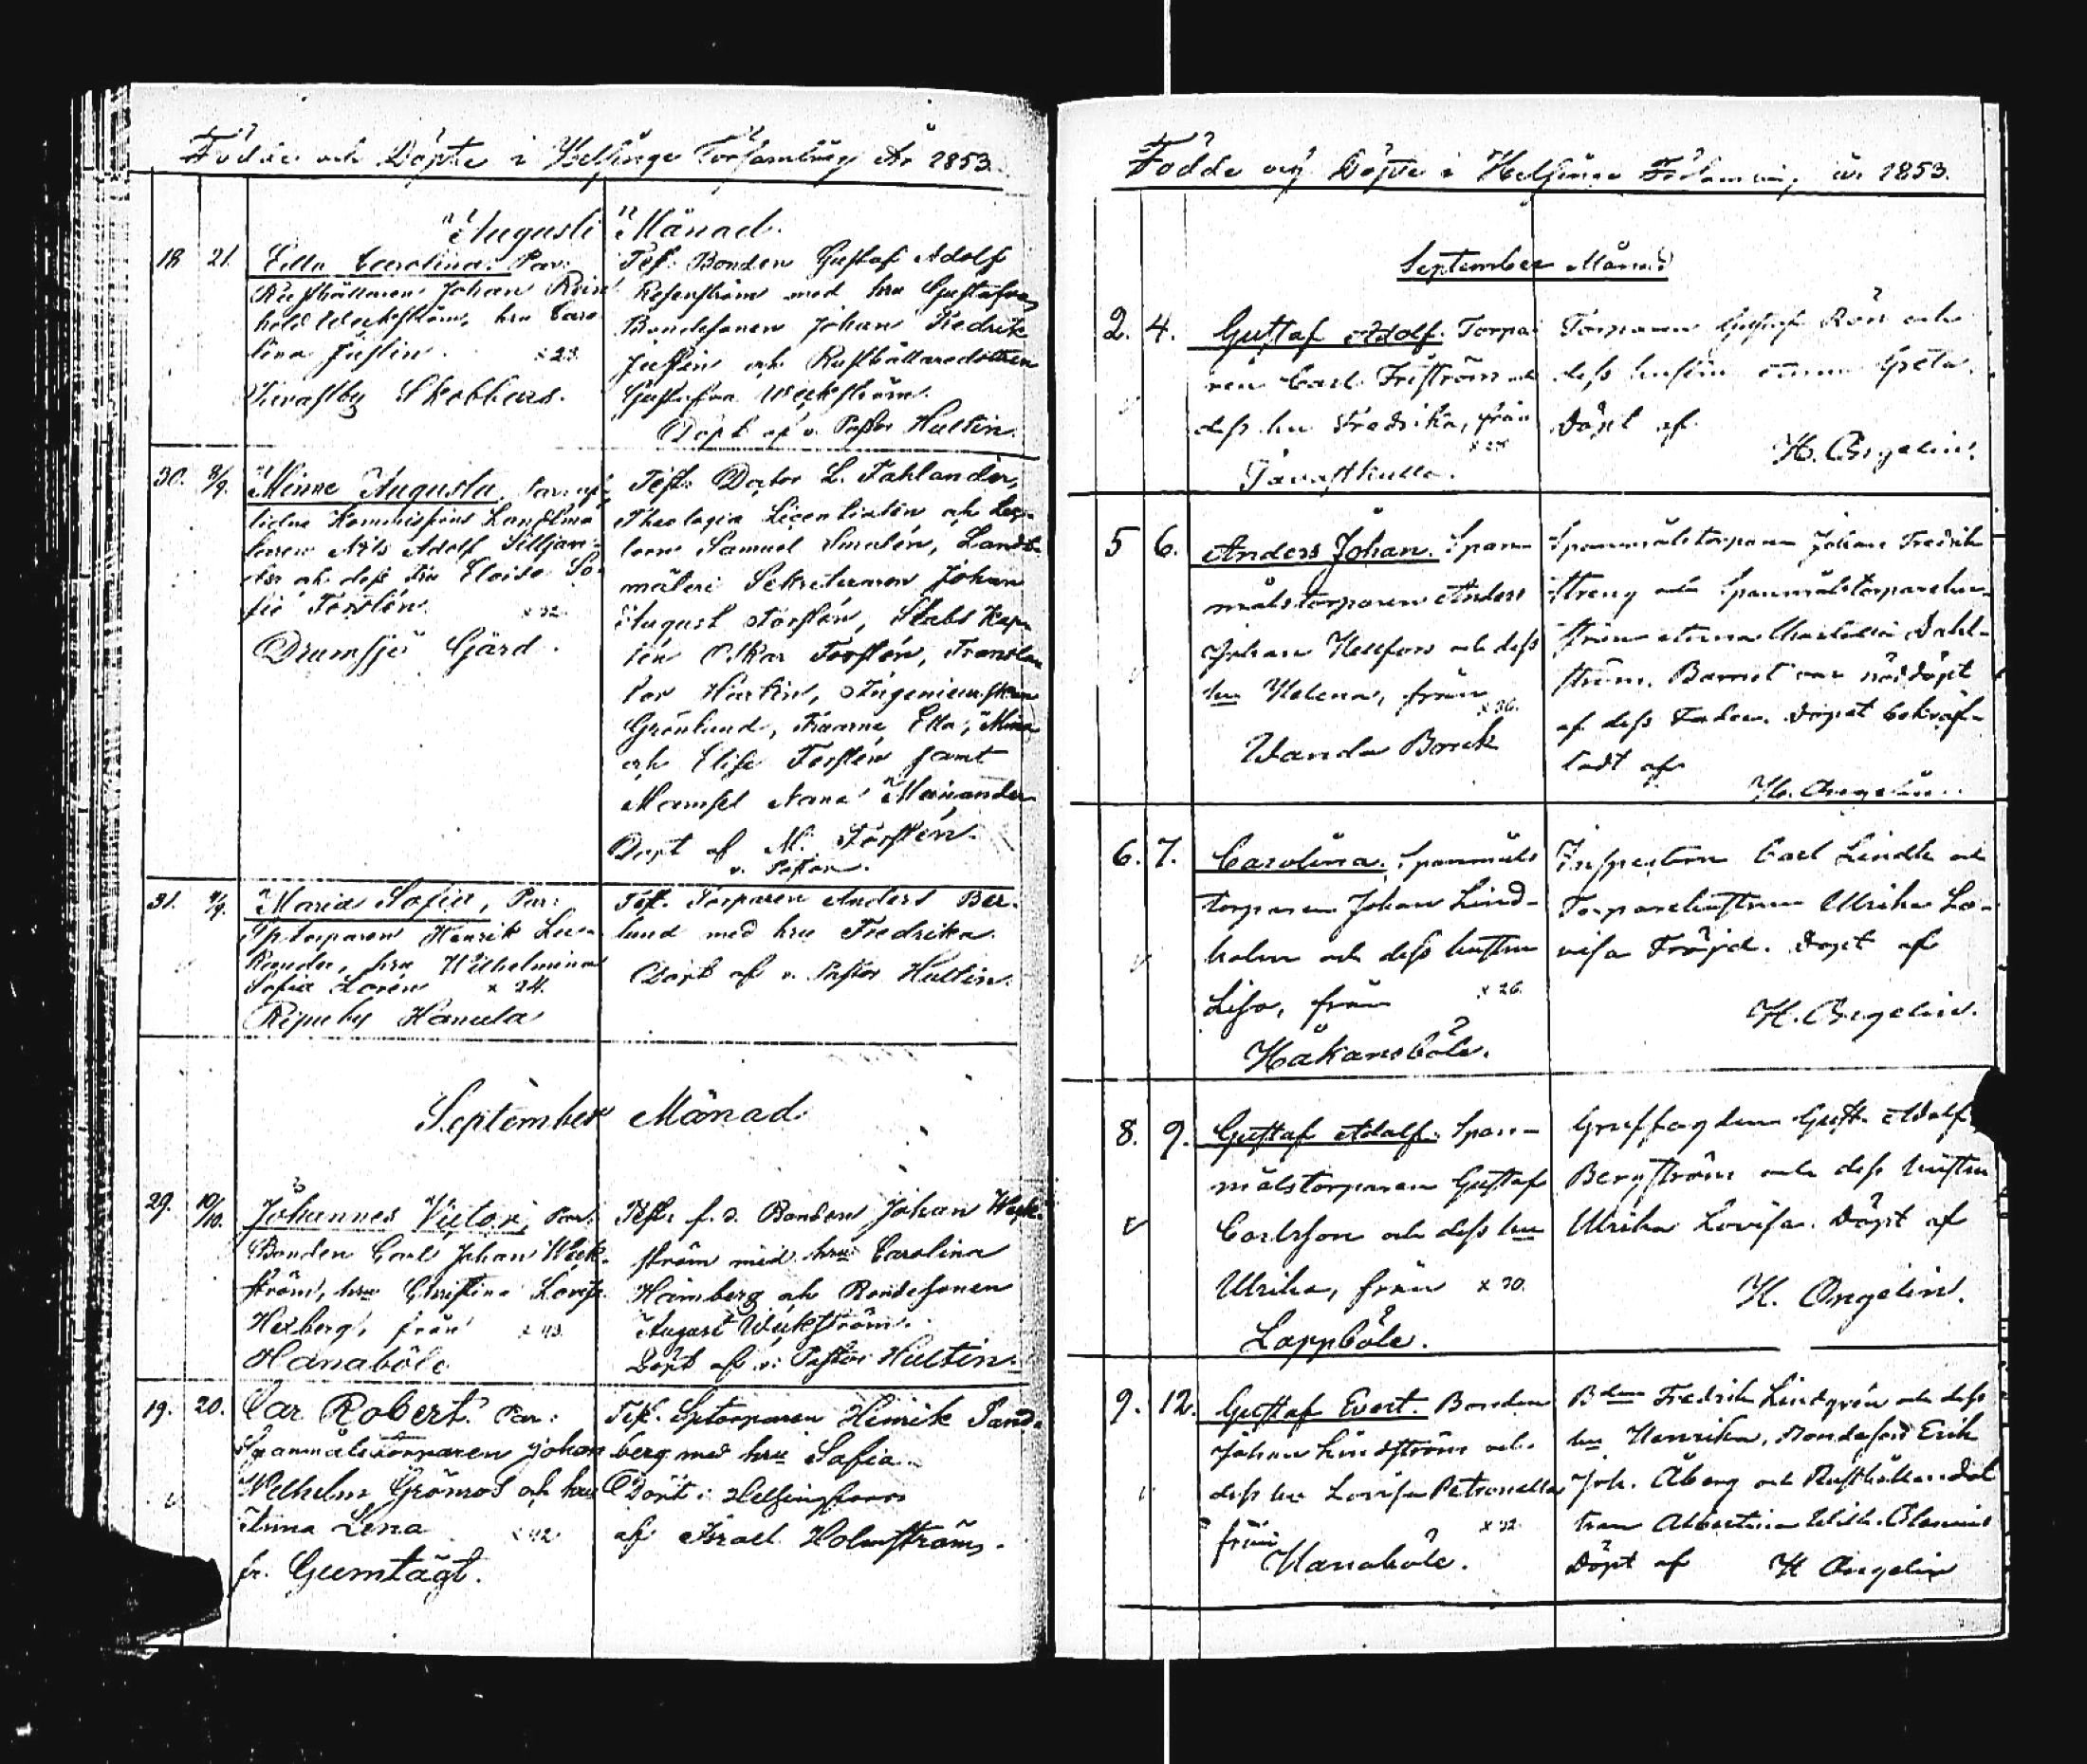 Födde och Döpte i Helsinge Församling År 1853.
Augusti Månad.
18 21. Edla Carolina. Par:
Rusthållaren Johan Rein
hold Weckström, hru Caro
lina Justin. x 23.
Test: Bonden Gustaf Adolf
Rosenström med hru Gustafva,
Bondesonen Johan Fredrik
Justin och Rusthållaredottren
Gustafva Weckström.
Döpt af v. Pastor Hultin.
30. 8/9. Minne Augusta,
Kommissions Landtmä
taren Nils Adolf
och dess fru So
fie Forstén. x 32.
Drumsjö Gård.
Test: L. Fahlander,
Theologie Licentiaten och
Samuel Smalén, Landt
mäteri Sekreteraren Johan
August Forstén, Stabs Kap
ten Oskar Forstén, Transla
tor Hartin,
Grönlund, Fruarne Etta, Mina
och Elise Forstén samt
Mamsel Nana
Döpt af M. Forstén.
v. Pastor.
31. 4/9. Maria Sofia, Par:
Sptorparen Henrik
hru Wilhelmina
Sofia Lorén x 24.
Ripuby Hanula
Test. Torparen Anders Ber-
lund med hru Fredrika.
Döpt af v. Pastor Hultin.
September Månad.
29. 10/10. Johannes Victor, Par:
Bonden Carl Johan Weck-
ström, hru Christina Lovisa
Hexberg, från x 43.
Hanaböle
Test: f. d. Bonden Johan Weck-
ström med hru Carolina
Hamberg och Bondesonen
August Weckström.
Döpt af v: Pastor Hultin.
19. 20. Car Robert. Par:
Spanmålstorparen Johan
Wilhelm Grönros och hru
Anna Lena x 42.
fr. Gumtägt.
Test. Sptorparen Henrik Sand-
berg med hru Sofia.
Döpt i Helsingfors
af Israel Holmström.
Födde och Döpte i Helsinge Församling år 1853.
September Månad
2. 4. Gustaf Adolf. Torpa
ren Carl Friström och
dess hu Fredrika, från
x 28
Tavastkulla.
Torparen Gustaf Rön och
dess hustru Anna Greta.
Döpt af
H. Ongelin.
5 6. Anders Johan. Span
målstorparen Anders
Johan Hellfors och dess
hu Helena, från
x 36.
Wanda Backe
Spanmålstorparen Johan Fredrik
Streng och Spanmålstorparehu-
strun Anna Dahl-
ström. Barnet var nöddöpt
af dess Fader. Döpet bekräf-
tadt af
H. Ongelin.
6. 7. Carolina. Spanmåls
torparen Johan Lind-
holm och dess hustru
Lisa, från x 26.
Håkansböle.
Inspectorn Carl Lindh och
Torparehustrun Ulrika Lo-
visa Fröjd. Döpt af
H. Ongelin.
8. 9. Gustaf Adolf. Span-
målstorparen Gustaf
Carlsson och dess hu
Ulrika, från x 30.
Lappböle.
Gruffogden Gust. Adolf
Bergström och dess hustru
Ulrika Lovisa. Döpt af
H. Ongelin.
9. 12. Gustaf Evert. Bonden
Johan Lindström och
dess hu Lovisa Petronella
x 32.
från
Hanaböle.
Bden Fredrik Lindgrén och dess
hu Henrika, Bondeson Erik
Joh. Åberg och Rusthållaredot
tren Albertina Wilh.
Döpt af H Ongelin